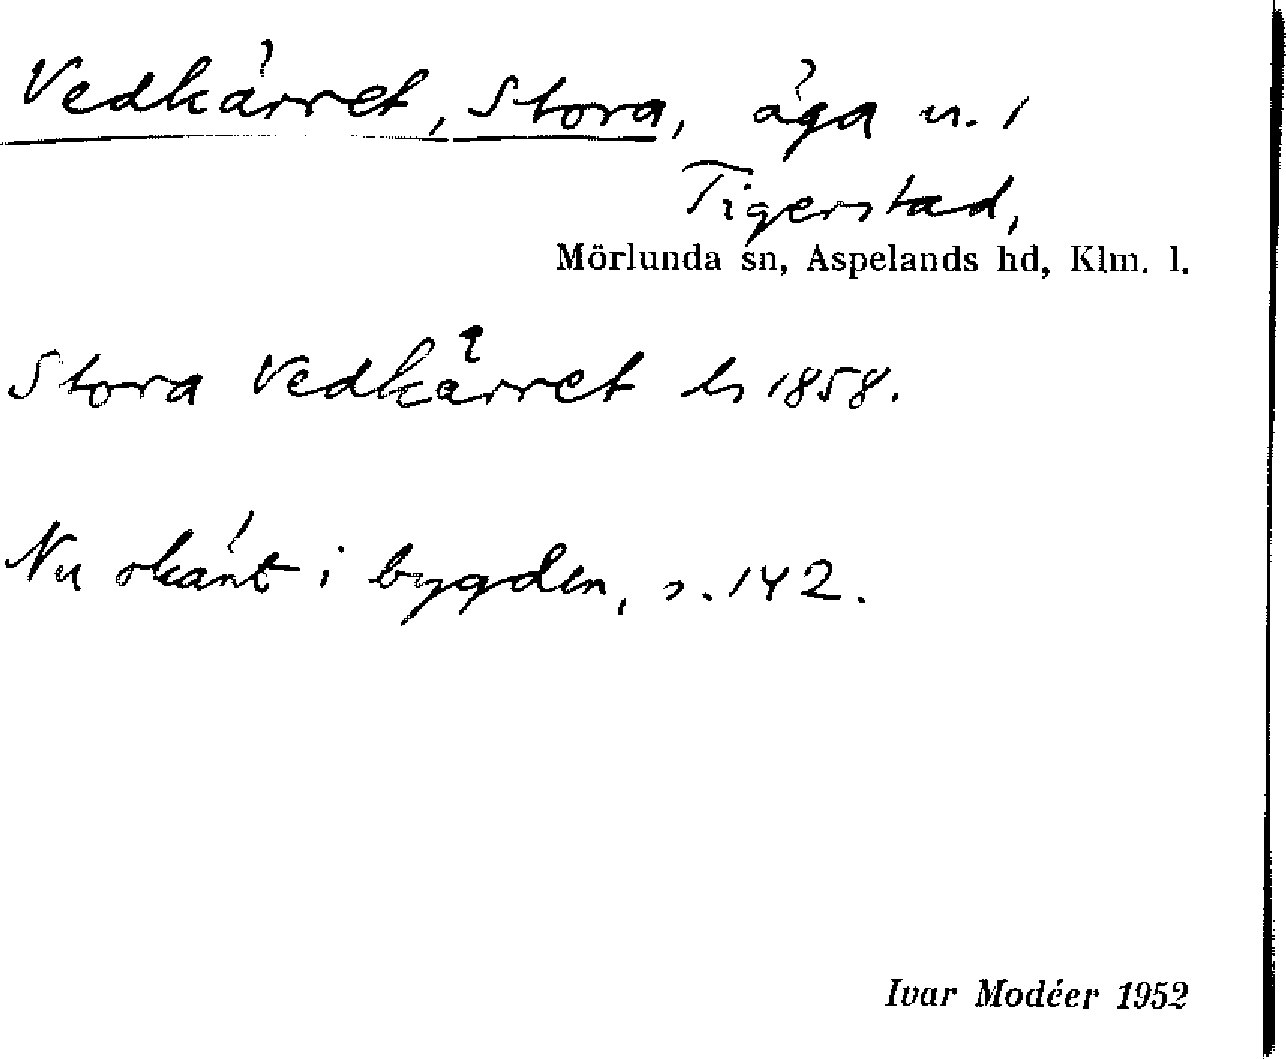 Vedkärret, Stora, äga u. 1
Tigerstad,
Mörlunda sn, Aspelands hd, Klm. l.
Stora Vedkärret ls 1858.
Nu okänt i bygden, s. 142.
Ivar Modéer 1952